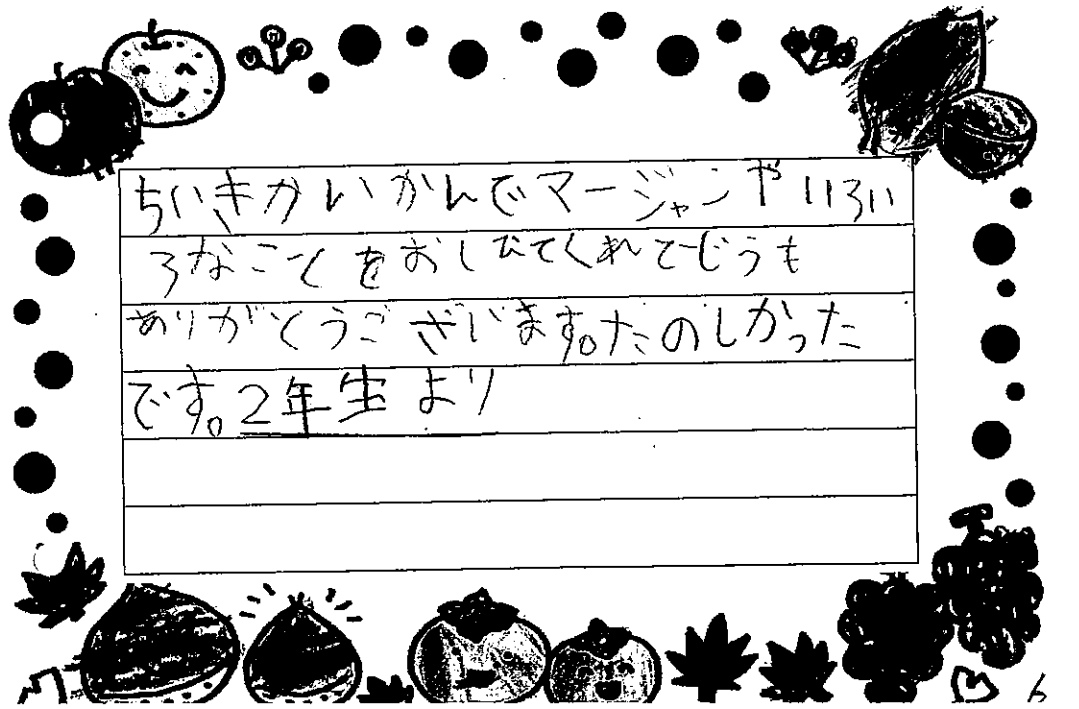 ちいきかいかんでマージャンやいろい
ろなことをおしえてくれてどうも
ありがとうございます。たのしかった
です。2年生より
6